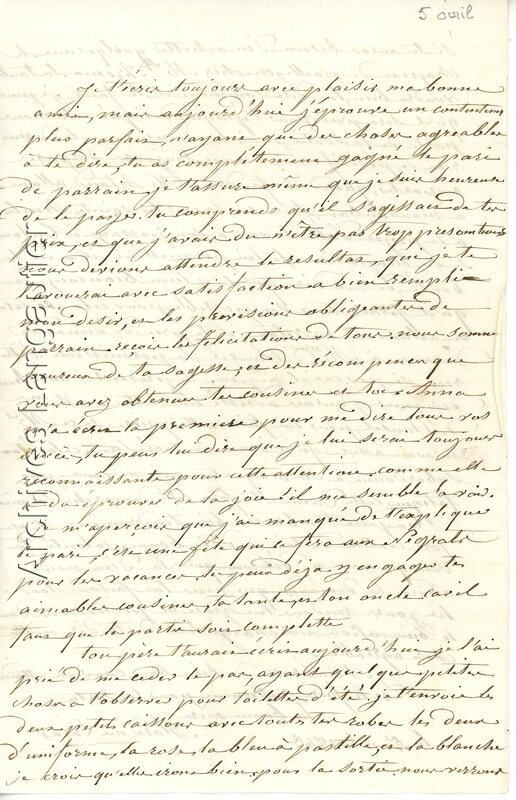 5 avril
Je t'écris toujours avec plaisir ma bonne
amie, mais aujourd'hui j'éprouve un contentement
plus parfait, n'ayant que des choses agréables
à te dire, tu as complétement gagné le pari
de parrain, je t'assure même que je suis heureuse
de le payer. tu comprends qu'il s'agissait de tes
prix, et que j'avais du n'être pas trop presomtueuse
nous devions attendre le resultat, qui je te
l'avouerai avec satisfaction a bien rempli
mon desir, et les provisions obligeantes de
parrain reçois les félicitations de tous. nous somme
heureux de ta sagesse, et des récompences que
vous avez obtenues tes cousines et toi. Anna
m'a écrit la première pour me dire tous vos
succès, tu peus lui dire que je lui serai toujours
reconnaissante pour cette attention, comme elle
a du éprouver de la joie il me semble la voir.
m'aperçois que j'ai manqué de t'explique
le pari, c'est une fête qui ce fera aux Négrals
pour les vacances, tu peus déja y engager tes
aimables cousines, ta tante, et ton oncle car il
faus que la partie sois complette
ton pere t'aurait écris aujourd'hui je l'ai
prié de me ceder le pas, ayant quelque petites
chose a t'observer pour toilettes d'été, je t'envoie les
deux petits caissons avec touts tes robes les deux
d'uniforme, la rose, la bleu à pastille, et la blanche
je crois qu'elle irons bien, pour la sortie nous verrons
Archives Langautier